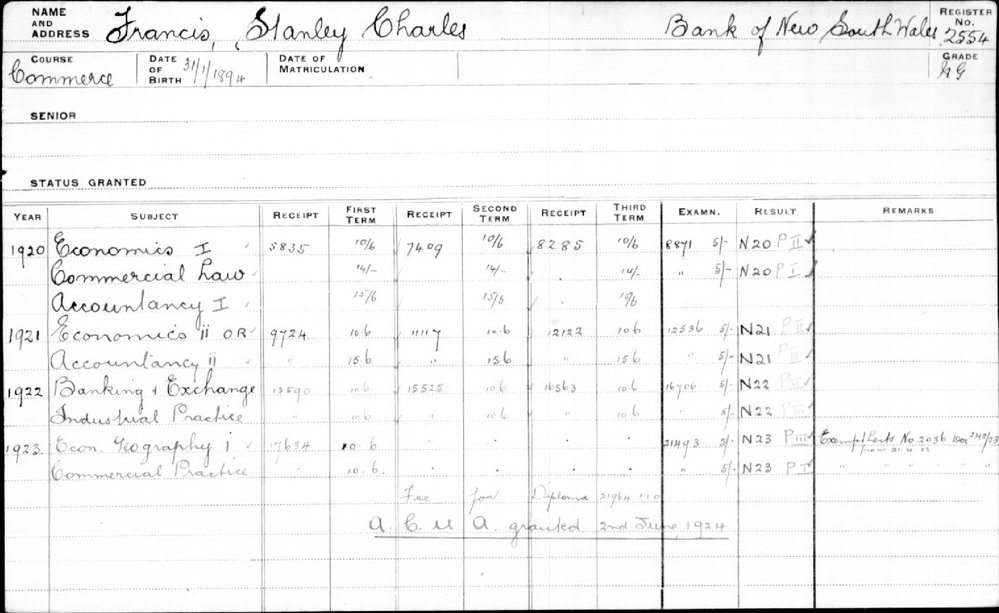 NAME AND ADDRESS Francis, Stanley Charles Bank of New South Wales REGISTER No. 2554
COURSE Commerce DATE OF BIRTH 31/1/1894 DATE OF MATRICULATION GRADE
SENIOR
STATUS GRANTED
YEAR SUBJECT RECEIPT FIRST TERM RECEIPT SECOND TERM RECEIPT THIRD TERM EXAMN. RESULT REMARKS
1920 Economics I 5835 10/6 7409 10/6 8285 10/6 8871 5/- N20 P II ✓
Commercial Law 14/- 14/- . 14/- " 5/- N20 P I ✓
Accountancy I 15/6 15/6 . 15/6
1921 Economics ii OR 9724 10.6 11117 10.6 12122 10.6 12536 5/- N21 P II ✓
Accountancy ii " 15.6 " 15.6 " 15.6 " 5/- N21 ✓
1922 Banking + Exchange 10.6 15525 10.6 16563 10.6 16706 5/- N22 P II ✓
Industrial Practice " 10.6 " 10.6 " 10.6 " 5/- N22 P III ✓
1923 Econ. Geography i 17654 10.6 . . . . 21493 5/- N23 P III ✓ Exempt Lects No 2036
Commercial Practice " 10.6 . . . . " 5/- N23 P I ✓ " " " " "
Fee for Diploma 21964 1.1.0
A. C. U. A. granted 2nd June, 1924